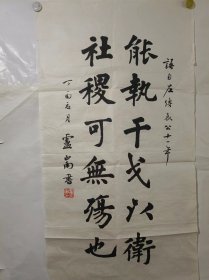 語自左传哀公十一年
能執干戈以衛
社稷可無殤也
丁酉夏月
盧禹書